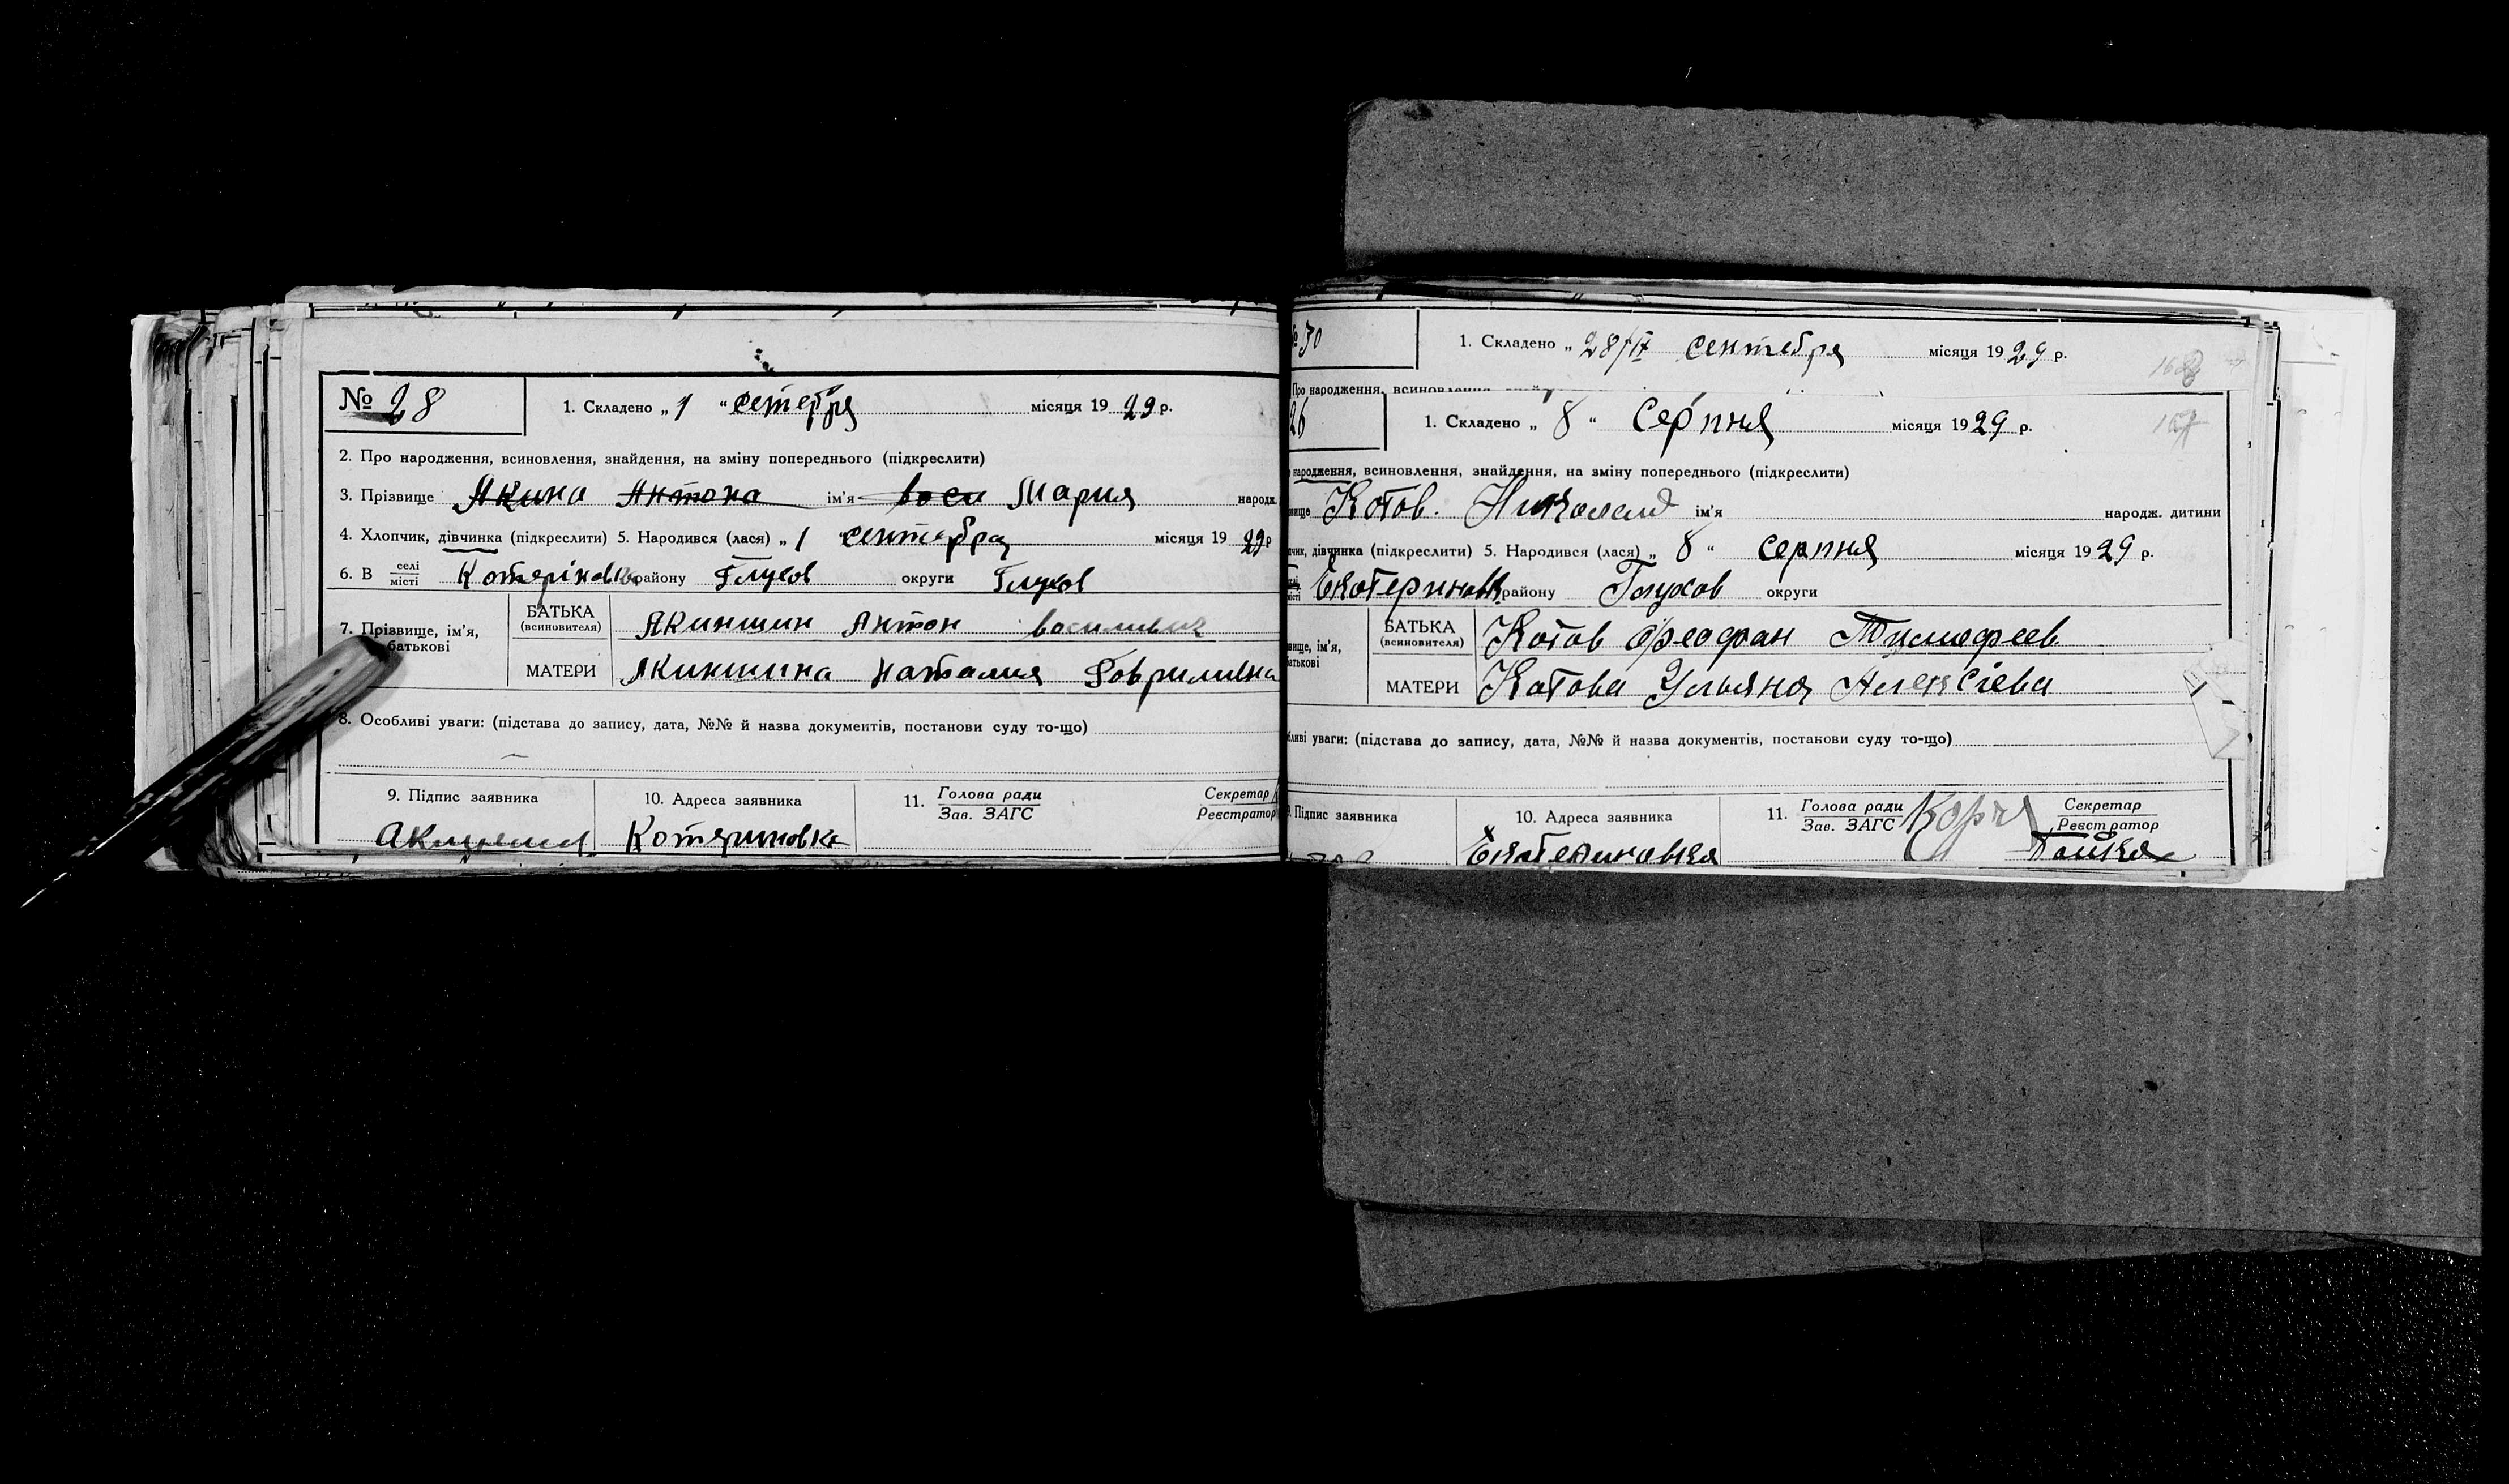 № 28
1. Складено „ 1 “ сетебря місяця 1929 р.
2. Про народження, всиновлення, знайдення, на зміну попереднього (підкреслити)
3. Прізвище Акина Антона ім'я васи Мария народж.
4. Хлопчик, дівчинка (підкреслити) 5. Народився (лася) „ 1 сентебра місяця 1929 р
6. В селі місті Котяріновка району Глухов округи Глухов
7. Прізвище, ім'я, батькові
БАТЬКА (всиновителя) Акиншин Антон василивич
МАТЕРИ Акиншина Наталия Говриливна
8. Особливі уваги: (підстава до запису, дата, №№ й назва документів, постанови суду то-що)
9. Підпис заявника 10. Адреса заявника 11. Голова ради Зав. ЗАГС Секретар Реєстратор
Акиншин Котяриновка
№ 30
1. Складено „ 28/IX сентебря місяця 1929 р.
168
Про народження, всиновлення
26
1. Складено „ 8 “ Серпня місяця 1929 р.
167
народження, всиновлення, знайдення, на зміну попереднього (підкреслити)
вище Котов. Николай ім'я народж. дитини
пчик, дівчинка (підкреслити) 5. Народився (лася) „ 8 “ серпня місяця 1929 р.
селі місті Екатериновка району Глухов округи
вище, ім'я, батькові
БАТЬКА (всиновителя) Котов Феофан Тимофеев
МАТЕРИ Котова Ульяна Алексіева
бливі уваги: (підстава до запису, дата, №№ й назва документів, постанови суду то-що)
9. Підпис заявника 10. Адреса заявника 11. Голова ради Зав. ЗАГС Секретар Реєстратор
Екатериновка